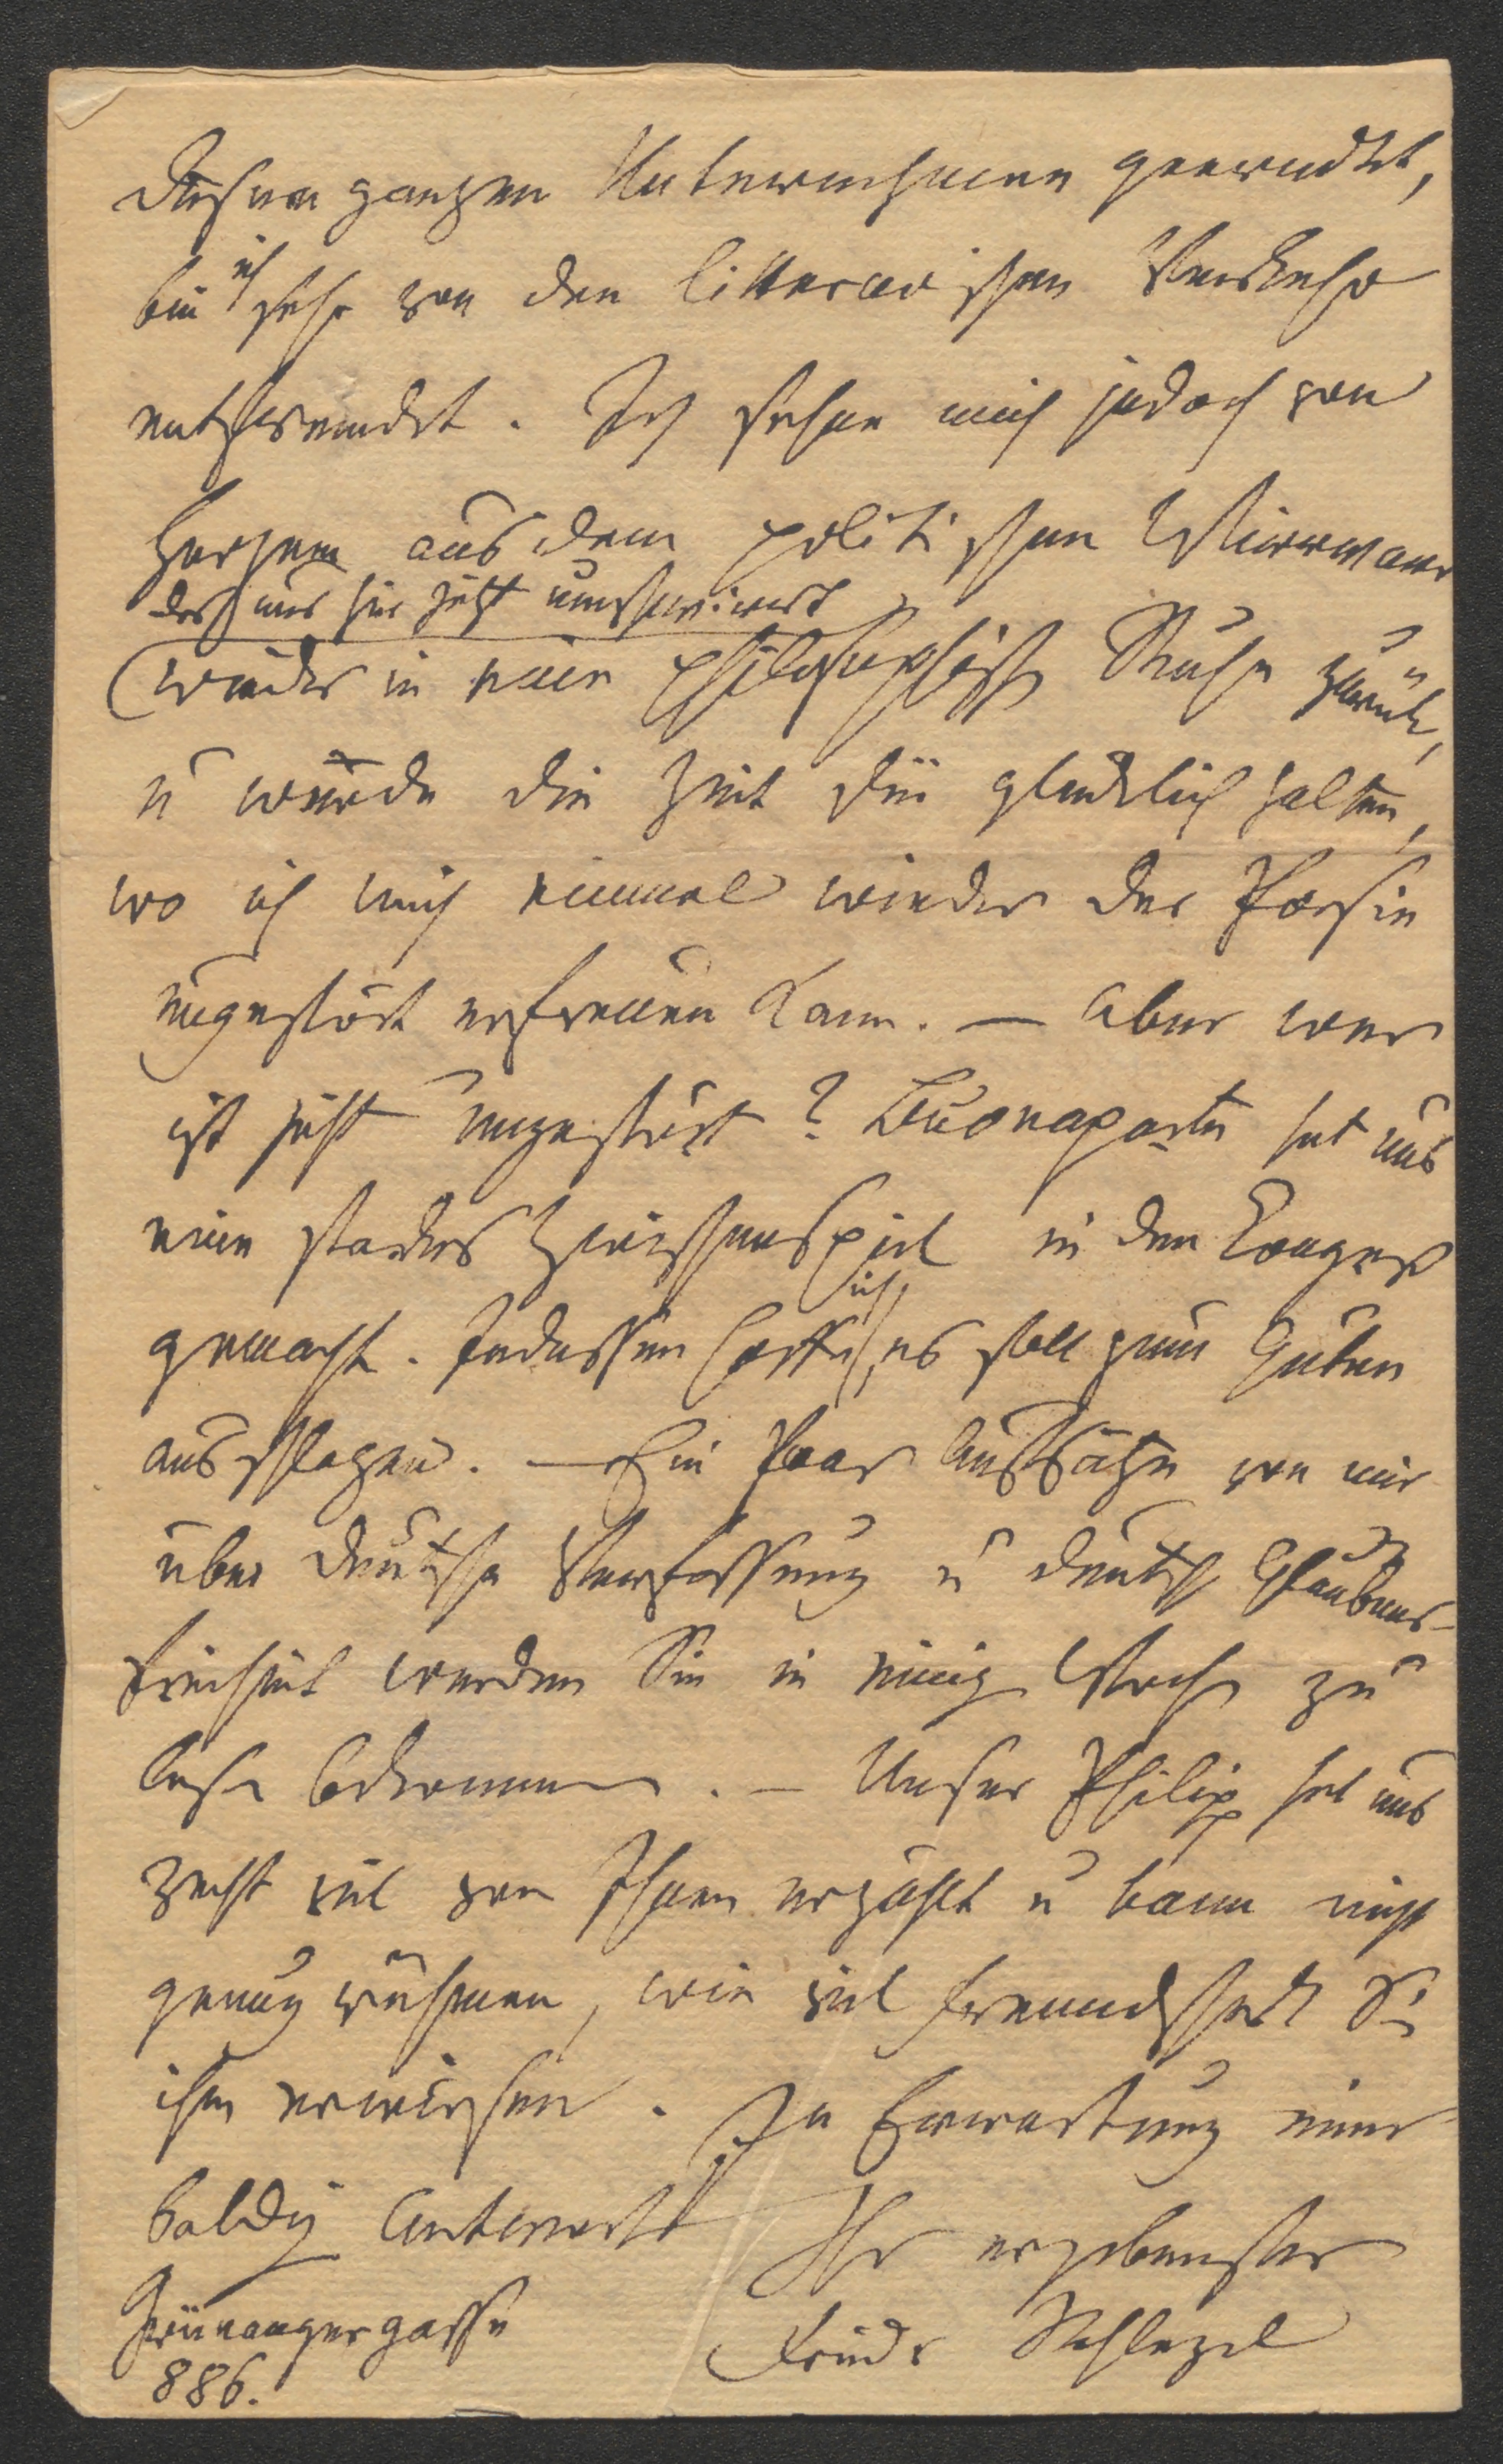 diesem ganzen Unternehmen geendet,
bin ich sehr von den litterarischen Verkehr
entfremdet. Ich sehne mich jedoch von
Herzen aus dem politischen Wirrwarr
der uns hier jetzt umschwirrt
(wieder in eine philosophische Ruhe zurück,
u würde die Zeit für glücklich halten,
wo ich mich einmal wieder der Poesie
ungestört erfreuen kann. — Aber wer
ist jetzt ungestört? Buonaparte hat uns
ein starkes Zwischenspiel in den Congreß
gemacht. Indessen hoffe ich, es soll zum Guten
ausschlagen. — Ein Paar Aufsätze von mir
über deutsche Verfassung u deutsche Glaubens-
freiheit werden Sie in einig Woch zu
lesen bekommen. — Unser Philip hat uns
recht viel von Ihnen erzählt u kann nicht
genug rühmen, wie viel Freundschaft Sie
ihm erwiesen. In Erwartung einer
baldig Antwort
Ihr ergebenster
Friedr Schlegel
Grünangergasse
886.